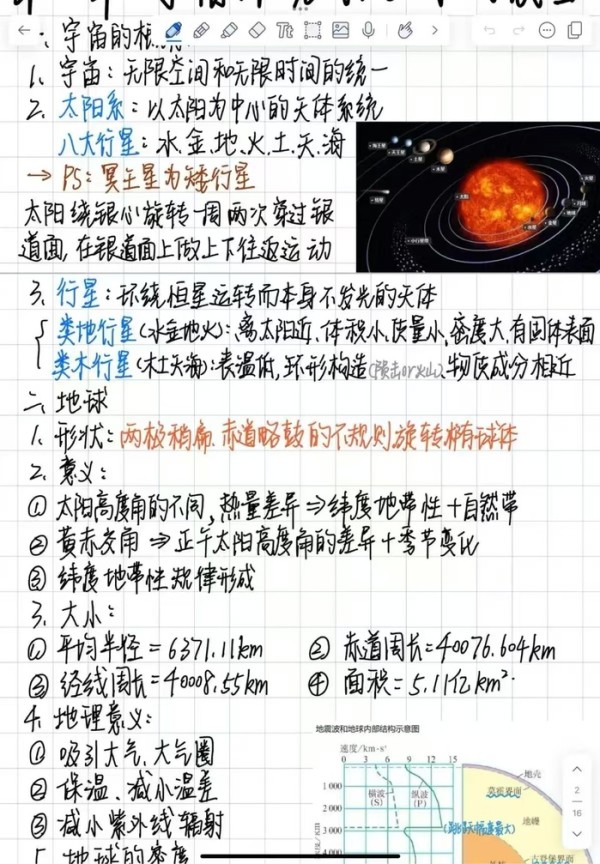 一、宇宙的
1. 宇宙：无限空间和无限时间的统一
2. 太阳系：以太阳为中心的天体系统
八大行星：水.金.地.火.土.天.海
→ PS：冥王星为矮行星
太阳绕银心旋转一周两次穿过银
道面，在银道面上做上下往返运动
海王星
天王星
土星
木星
彗星
太阳
火星
月球
地球
金星
水星
小行星带
3. 行星：环绕恒星运转而本身不发光的天体
类地行星(水金地火)：离太阳近、体积小、质量小、密度大、有固体表面
类木行星(木土天海)：表温低，环形构造(陨击or火山)、物质成分相近
二、地球
1. 形状：两极稍扁、赤道略鼓的不规则旋转椭球体
2. 意义：
① 太阳高度角的不同，热量差异⇒纬度地带性+自然带
② 黄赤交角⇒正午太阳高度角的差异+季节变化
③ 纬度地带性规律形成
3. 大小：
① 平均半径=6371.11km ② 赤道周长=40076.604km
③ 经线周长=40008.55km ④ 面积=5.11亿km²
4. 地理意义：
① 吸引大气、大气圈
② 保温、减小温差
③ 减小紫外线辐射
5. 地球的密度
地震波和地球内部结构示意图
速度/km·s⁻¹
0 3 6 9 12 15
1 000
2 000
3 000
横波
(S)
纵波
(P)
地壳
莫霍界面
地幔
古登堡界面
2
16